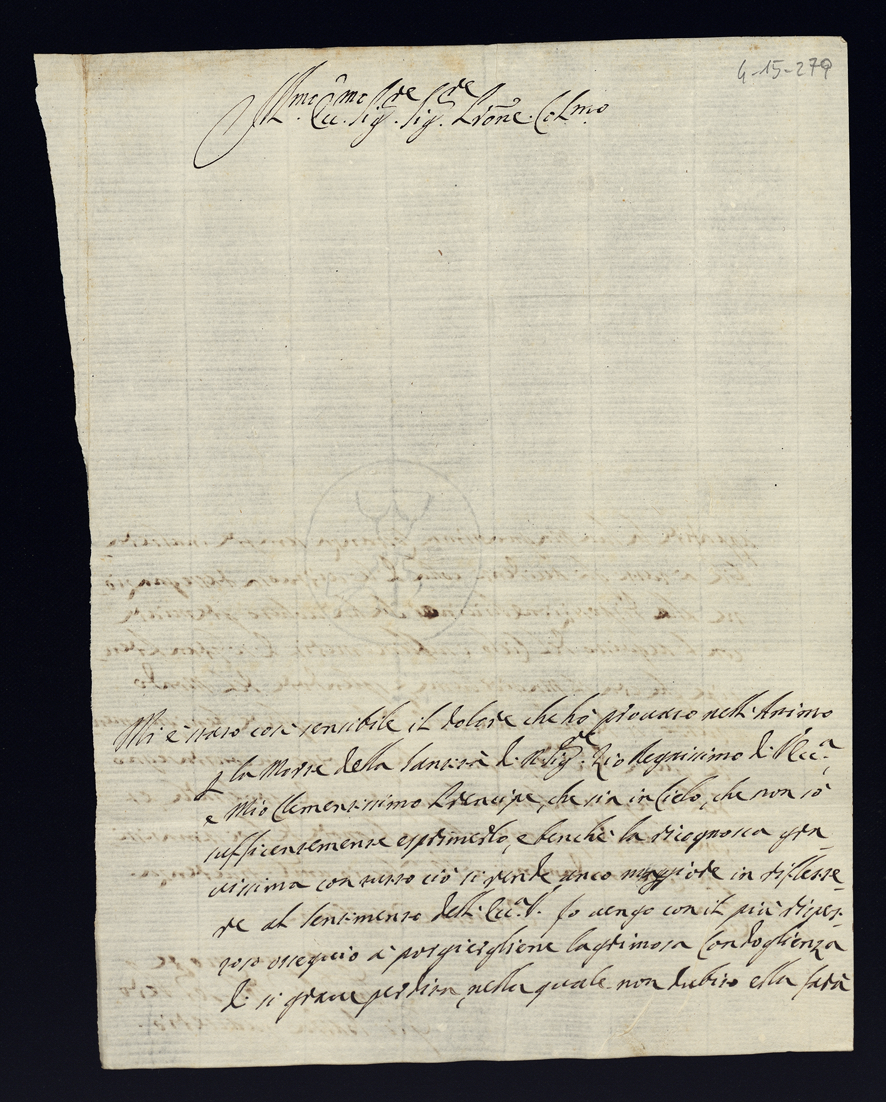 4-15-279
Ill.mo Ecc.mo Sig.re Sig.re Prõne Col.mo
Mi è stato così sensibile il dolore che hò provato nell'Animo
p la Morte della Santità di N. Sig.re Zio degnissimo di V. Ecc.a,
e Mio Clementissimo Prencipe, che sia in Cielo, che non sò
sufficentemente esprimerlo, e benchè la ricognosca gra-
vissima con tutto ciò si rende anco maggiore in riflette-
re al sentimento dell' Ecc.a V. Io vengo con il più rispet-
toso ossequio à porgiergliene lagrimosa Condoglienza
di sì grave perdita, nella quale non dubito ella sarà